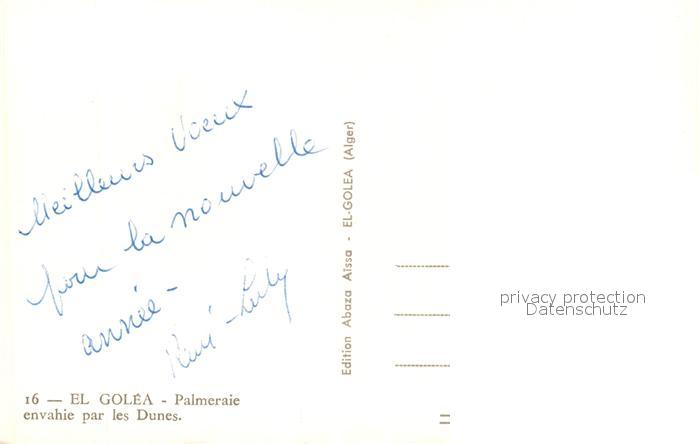 Meilleurs Voeux
pour la nouvelle
année -
René - Luly
16 — EL GOLÉA - Palmeraie
envahie par les Dunes.
Edition Abaza Aïssa - EL-GOLEA (Alger)
privacy protection
Datenschutz